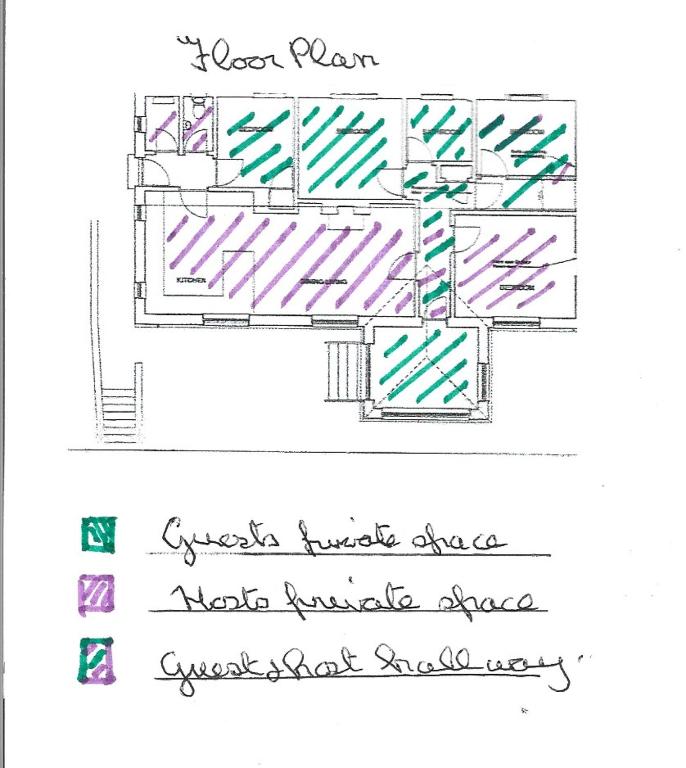 Floor Plan
BEDROOM
BEDROOM
BATHROOM
BEDROOM
KITCHEN
DINING/LIVING
BEDROOM
Guests private space
Hosts private space
Guest & host hallway